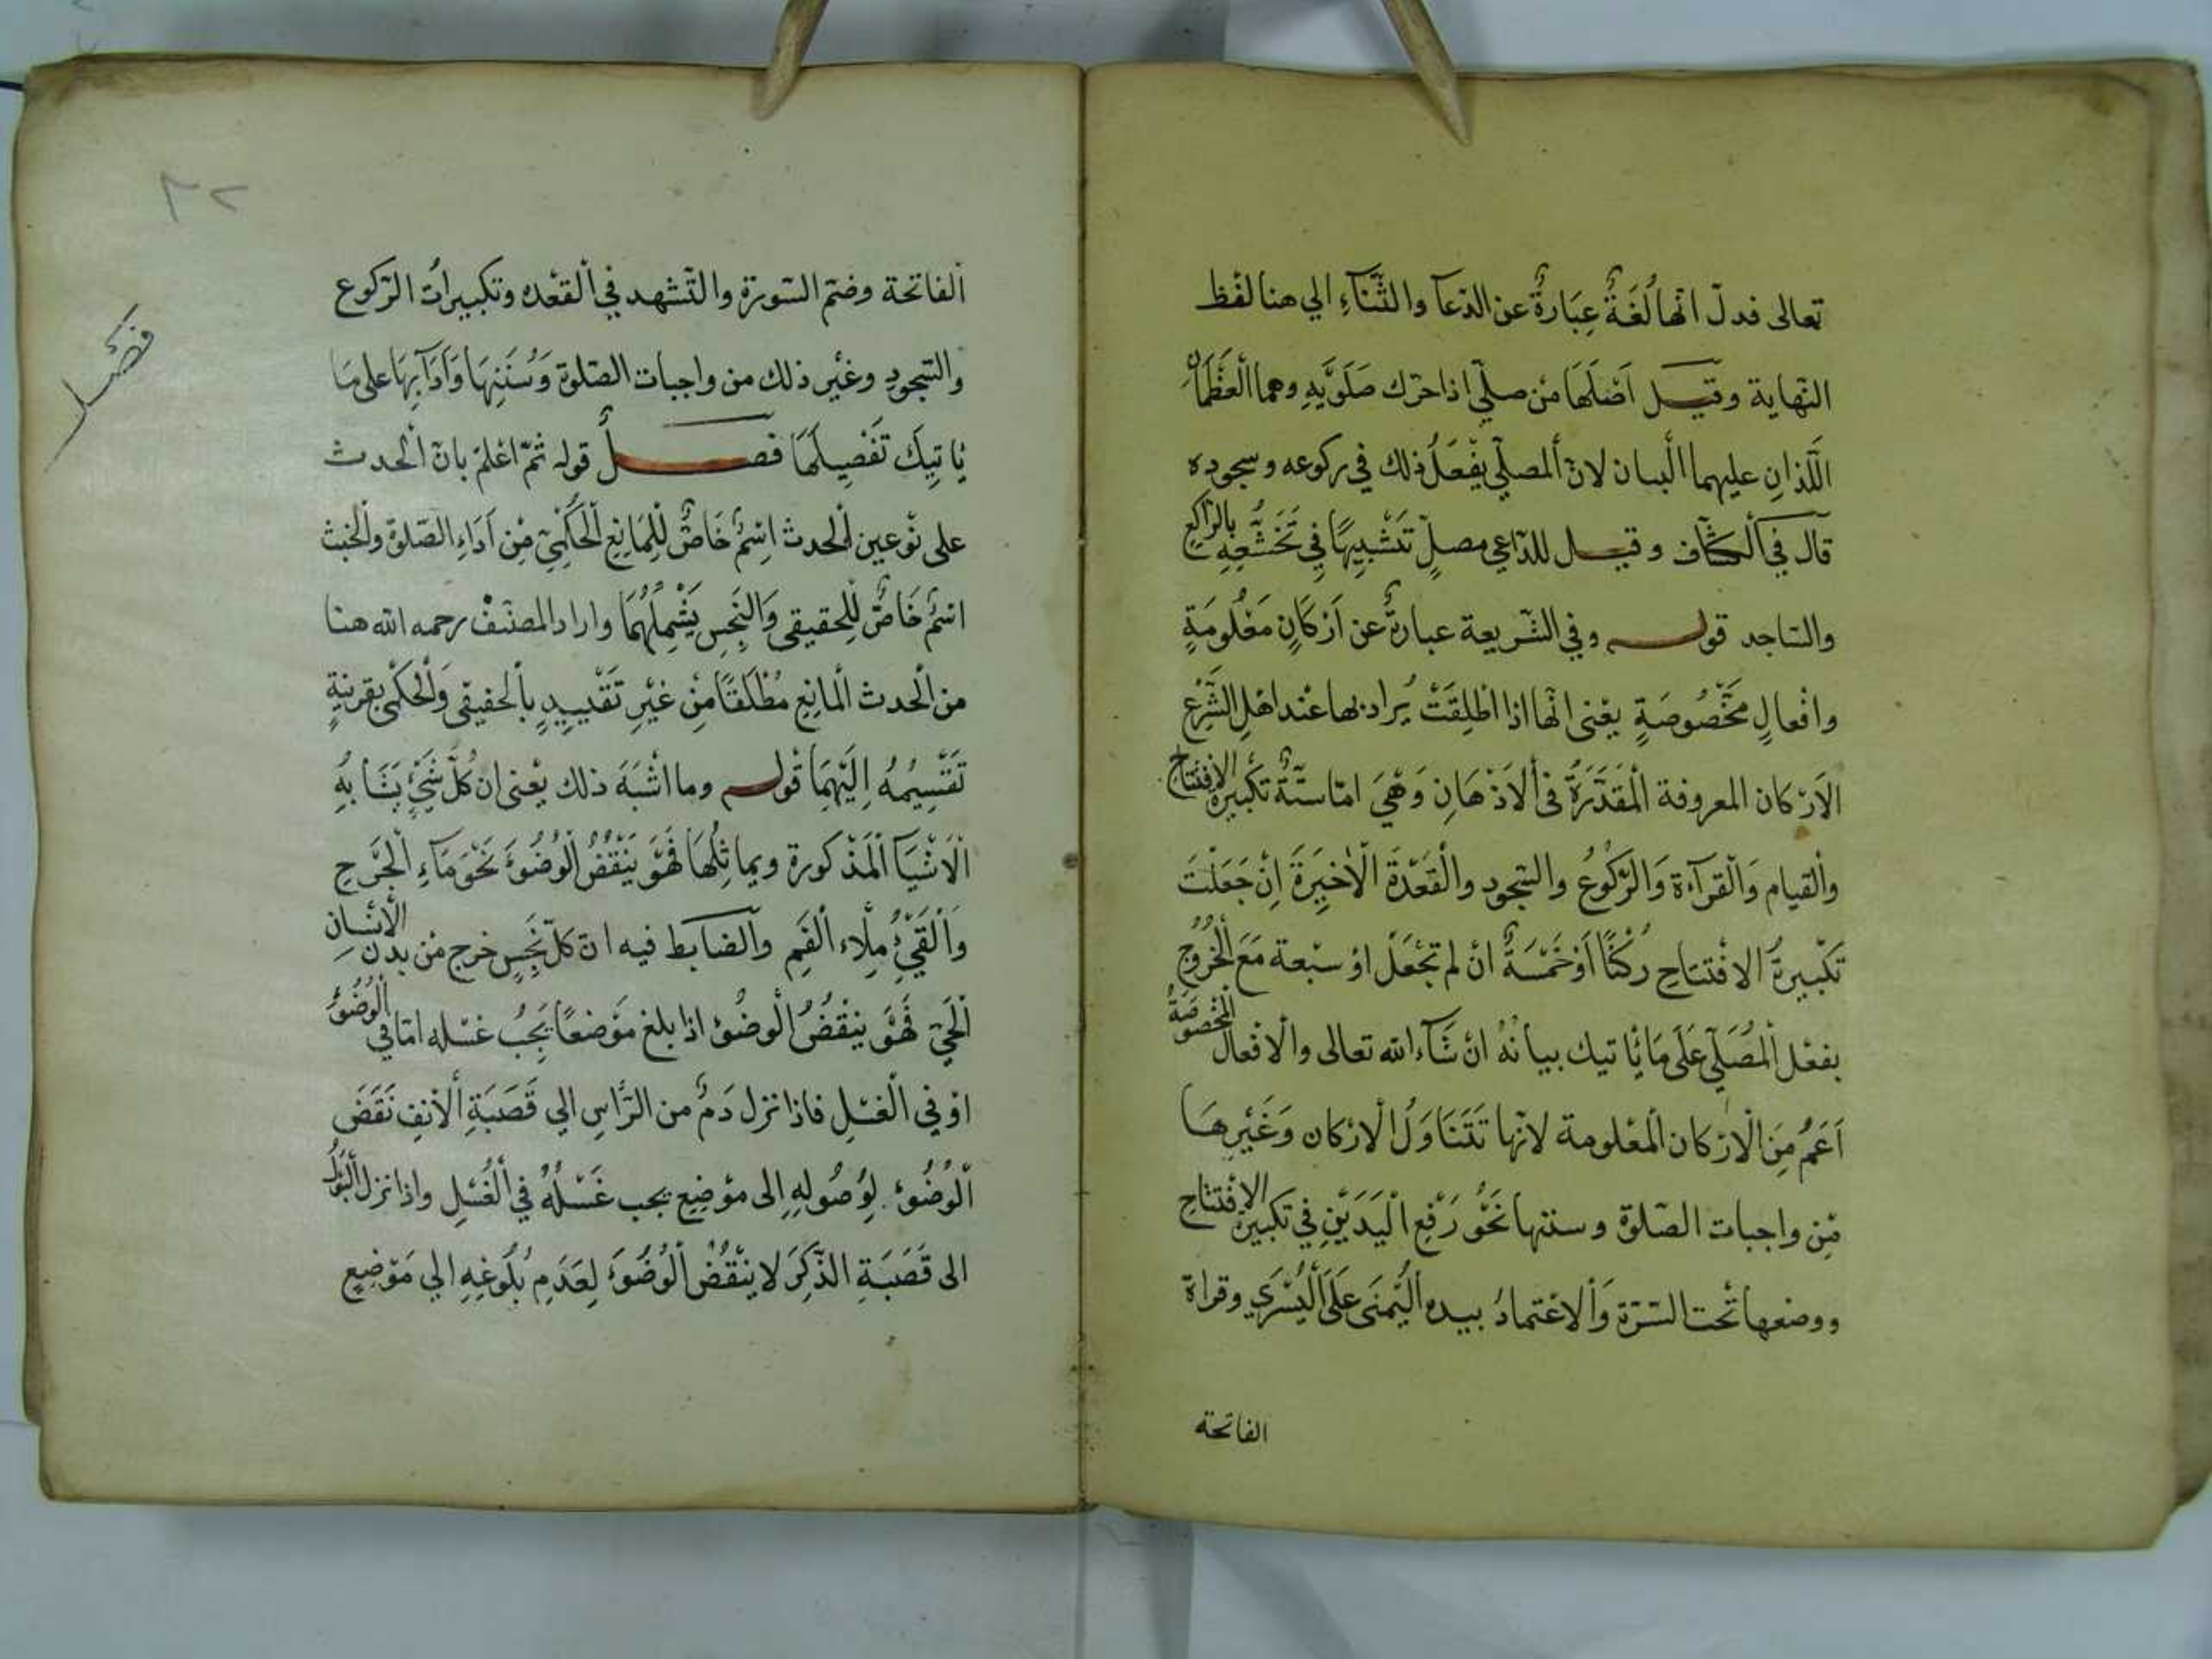 تعالى فدلّ انّها لُغَةٌ عِبَارةٌ عن الدّعآ والثّنَآءِ الي هنا لفظ
النّهاية وقيل اَصْلَهَا مْن صلّي اذا حرّك صَلَوَيْهِ وهما العَظْمَانِ
اللّذانِ عليهما الْبيان لانّ المصلّي يفْعَلُ ذلك في ركوعه وسجوده
قآل في الكشّاف وقيل للدّاعي مصلٍّ تَشْبِيهًا فِي تَخَشُّعِهِ بالرّاكع
والسّاجد قوله وفي الشّريعة عبارةٌ عن اَرْكَانٍ مَعْلُومَةٍ
وافْعالٍ مَخْصُوصَةٍ يعْنى انّها اذا اطْلِقَتْ يُراد بها عنْد اهْلِ الشّرْعِ
الاَرْكان المعروفة الْمُقَدَّرَةُ في الاَذْهَانِ وَهْيَ امّا ستّةٌ تكْبيرة الافتتاح
والْقيام وَالْقرآءة وَالرّكُوعُ والسّجود والْقَعْدَةَ الْاَخِيرَةَ اِنْ جَعَلْتَ
تكْبيرةُ الافْتتَاحِ رُكْنًا اَوْ خَمْسَةٌ انْ لم تجْعَلْ اوْ سبْعة مَعَ الْخُرُوج
بفعْل الْمُصَلّي عَلَى مَا يَأْتيك بيانُهُ انْ شَآءَ الله تعالى والْافْعال المخصوصَةُ
اَعَمُّ مِنَ الْاَرْكان الْمعْلومة لانّها تَتَنَاوَلُ الْارْكان وَغَيْرِهَا
مْن واجبات الصّلوة وسننها نَحْوُ رَفْعِ الْيَدَيْنِ في تكْبيرة الافْتتاح
ووضعها تحْت السّرّة وَالاعْتمادُ بيده الْيُمْنَى عَلَى الْيُسْرَي وقراة
الفاتحة
٣٢
الفاتحة وضمّ السّورة والتّشهد في القعْده وتكبيراتُ الرّكوع
والسّجودِ وغيْر ذلك من واجبات الصّلوة وَسُنَنِهَا وَاَدَآبِهَا على مَا
يَاتِيكَ تَفْصِيلَهَا فصلٌ قوله ثمّ اعْلمْ بانّ الْحدث
على نوْعين الْحدث اسْمٌ خَاصٌّ لِلْمَانِعِ الْحُكْمِيّ مِنْ اَدَاءِ الصّلوة والْخبث
اسْمٌ خَاصٌّ لِلْحقيقي وَالنَجِس يَشْمِلُهُمَا واراد المصنّفُ رحمه الله هنا
من الْحدث الْمانِع مُطْلَقًا مِنْ غَيْرِ تَقْيِيدٍ بالحقيقي وَالْحكْمى بقرينةٍ
تَقْسِيمُهُ اِلَيْهِمَا قوله وما اشْبَهَ ذلك يعْنى ان كُلَّ شَيْئٍ يشَابهُ
الْاشْيَآ الْمَذْكورة ويماثِلُهَا فَهُوَ يَنْقُضُ الْوُضُؤَ نَحْوَ مَآءِ الْجَرْحِ
وَالْقَيْئُ مِلْاء الْفَمِ والضابط فيه انّ كلّ نَجِسٍ خرج مْن بدن الْانْسَانِ
الْحَيّ فَهُوَ ينْقُضُ الْوضُوٴ اذا بلغ موْضعًا يَجِبُ غسْله امّا في الْوُضُوٴ
اوْ في الْغسْلِ فاذا نزل دَمٌ من الرّاسِ الي قَصَبَةِ الْاَنْفِ نَقَضَ
الْوُضُوٴ لِوُصُولِهِ اِلى موْضِعٍ يجب غَسْلُهُ في الْغُسْلِ واذا نزل الْبَوْلُ
الى قَصَبَةِ الذَّكِرَ لا ينْقُضُ الْوُضُوَٴ لِعَدَمِ بُلُوغِهِ الي مَوْضِعٍ
فَصْل